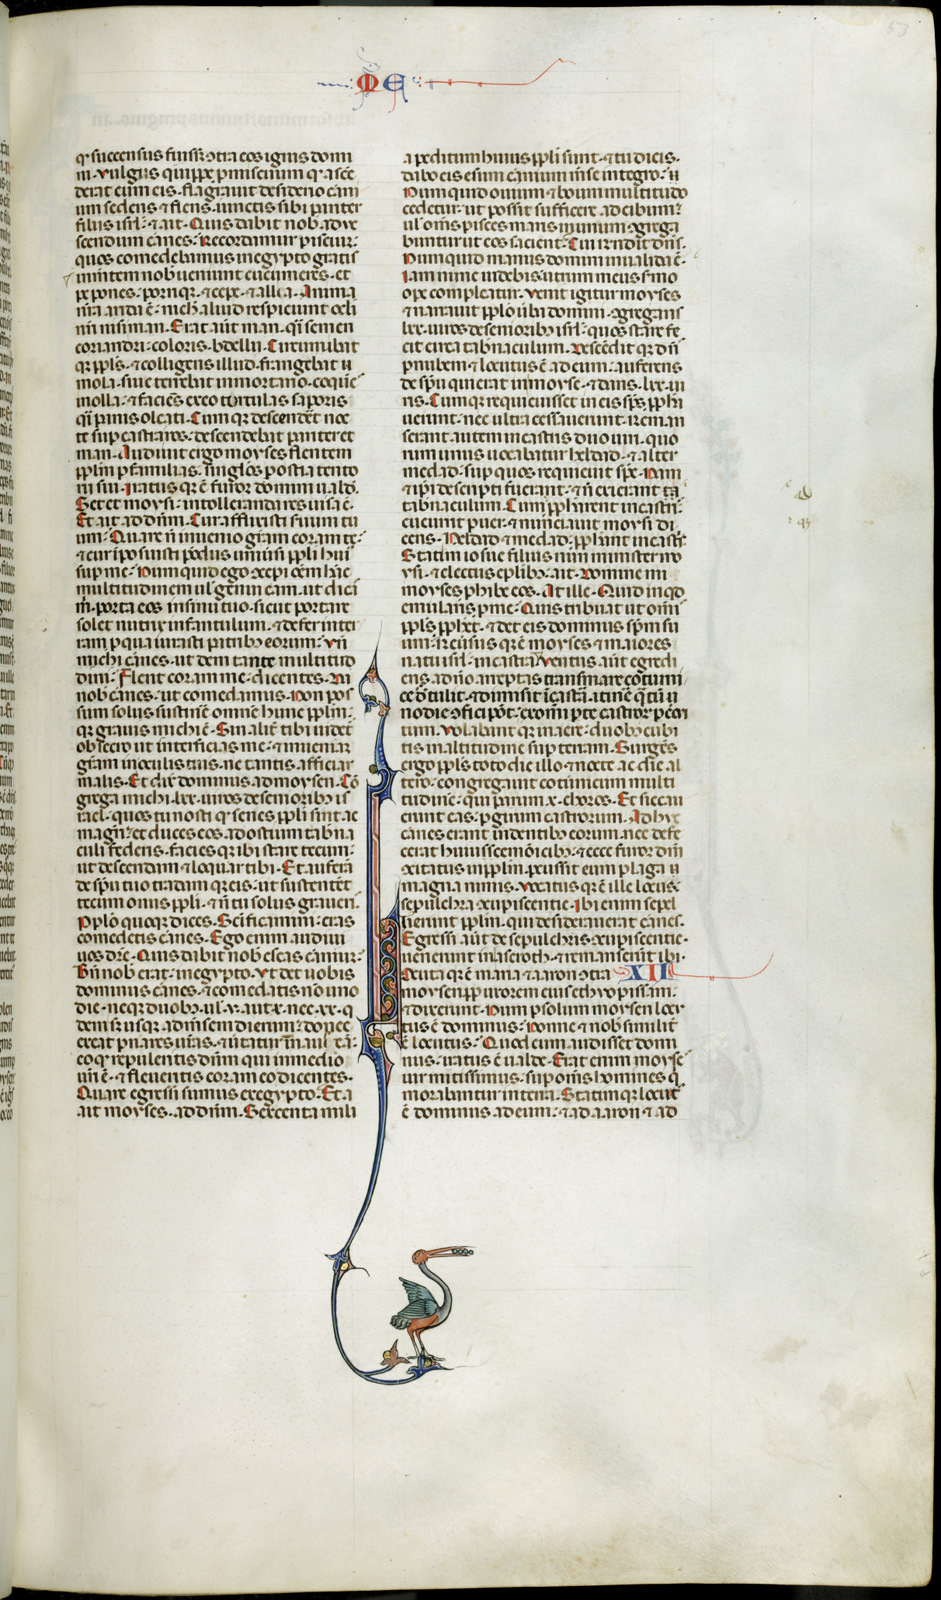 ME
q succensus fuiss; ɔtra eos ignis domi
ni. Vulgus quippe p̱miscuum q ascē
derat cum eis. flagrauit desiderio carni
um sedens & flens. iunctis sibi pariter
filiis isrl. & ait. Quis dabit nob ad ve
scendum carnes. Recordamur pisciū.
quos comedebamus in egypto gratis
in mentem nob ueniunt cucumeres. et
pepones. porriq. & cepe. & allea. Anima
nr̄a arida ē. nichil aliud respiciunt oculi
nr̄i nisi man. Erat aūt man. qi semen
coriandri. coloris. bdellii. Circumibat
q ppls. & colligens illud. frangebat i
mola. siue terebat in mortario. coques
in olla. & facies ex eo tortulas saporis
qi panis oleati. Cum q descenderet noc
te sup castra ros. descendebat pariter et
man. Audiuit ergo moyses flentem
pplm p familias. singlos p ostia tento
rii sui. Iratus q ē furor domini ualde.
Set et moysi intolleranda res uisa ē.
Et ait ad dn̄m. Cur afflixisti seruum tu
um. Quare n̄ inuenio gr̄am coram te.
& cur iposuisti pōdus uniusi ppli hui
sup me. Num quid ego ɔcepi om̄em hāc
multitudinem ul genui eam. ut dicas
m̄. porta eos in sinu tuo. sicut portare
solet nutrix infantulum. & defer in ter
ram p qua iurasti patrib eorum. Vn̄
michi carnes. ut dem tante multitud
dini. Flent coram me. dicentes. Da
nob carnes. ut comedamus. Non pos
sum solus sustinere omnē hunc pplm.
q grauis michi ē. Sin aliter tibi uidet
obsecro ut interficias me. & inueniā
gr̄am in oculis tuis. ne tantis afficiar
malis. Et dix dominus ad moysen. Cō
grega michi .lxx. uiros de seniorib is
rael. quos tu nosti q senes ppli sint ac
magr̄i. et duces eos ad ostium tab̄na
culi federis. facies q ibi stare tecum.
ut descendam & loquar tibi. Et auferā
de spū tuo tradam q eis. ut sustentēt
tecum onus ppli. & n̄ tu solus graueri.
Pplo quoq dices. Scificamini. cras
comedetis carnes. Ego enim audiui
uos dicē. Quis dabit nob escas carniū.
Bn̄ nob erat in egypto. Vt det uobis
dominus carnes. & comedatis non uno
die. neq duob. ul .v. aut .x. nec .xx. q
dem. s; usq ad m̄sem dierum. donec
exeat p nares ur̄as. & uertatur in nauseā.
eo q repuleritis dn̄m qui in medio
uri ē. & fleueritis coram eo dicentes.
Quare egressi sumus ex egypto. Et a
ait moyses. ad dn̄m. Sexcenta mili
a peditum huius ppli sunt. & tu dicis.
dabo eis esum carnium m̄se integro. n̄
Num quid ouium & boum multitudo
cedetur. ut possit sufficere ad cibum.
ul om̄s pisces maris in unum ɔgrega
buntur ut eos sacient. Cui rn̄dit dn̄s.
Num quid manus domini inualida ē.
Iam nunc uidebis utrum meus smo
ope compleatur. Venit igitur moyses
& narrauit pplo u̇ba domini. ɔgregans
.lxx. uiros de seniorib isrl. quos stare fe
cit circa tab̄naculum. Descēdit q dn̄s
p nubem. & locutus ē ad eum. auferens
de spū qui erat in moyse. & dans .lxx. ui
ris. Cum q requieuisset in eis sps. pph̄a
uerunt. nec ultra cessauerunt. Reman
serant autem in castris duo uiri. quo
rum unus uocabatur heldad. & alter
medad. sup quos requieuit sps. Nam
& ipi descripti fuerant. & n̄ exierant ta
tab̄naculum. Cum ppharent in castris
cucurrit puer. & nunciauit moysi di
cens. Heldad & medad. pphant in castris.
Statim iosue filius nun minister mo
ysi. & electus e plurib. ait. Domine mi
moyses phibe eos. At ille. Quid inq̄d
emularis p me. Quis tribuat ut om̄is
ppls pphet. & det eis dominus spm su
um. Reuersus q ē moyses & maiores
natu isrl. in castra. Ventus aūt egredi
ens. a dn̄o arreptas trans mare coturni
ces detulit. & dimisit in castra. itinē q̄tū i
uno die ɔfici pōt. ex om̄i pte castror p circu
itum. Volabant q in aere. duob cubi
tis in altitudine sup terram. Surgēs
ergo ppls toto die illo. & nocte ac die al
tero. congregauit coturnicum multi
tudinē. qui parum .x. choros. Et siccau
erunt eas. p girum castrorum. Adhuc
carnes erant in dentib eorum. nec defe
cerat huiuscemōi cib. & ecce furor dn̄i
ɔcitatus in pplm. pcussit eum plaga
magna nimis. Vocatus q ē ille locus.
sepulchra ɔcupiscentie. Ibi enim sepel
lierunt pplm. qui desiderauerat carnes.
Egressi aūt de sepulchris ɔcupiscentie.
uenerunt in aseroth. & remanserūt ibi.
Locuta q ē maria & aaron ɔtra XII
moysen. pp uxorem eius ethyopissam.
& dixerunt. Num p solum moysen locu
tus ē dominus. Nonne & nob similit̄
ē locutus. Quod cum audisset domi
nus. iratus ē ualde. Erat enim moyse
uir mitissimus. sup om̄s homines q
morabantur in terra. Statim q locut̄
ē dominus ad eum. & ad aaron & ad